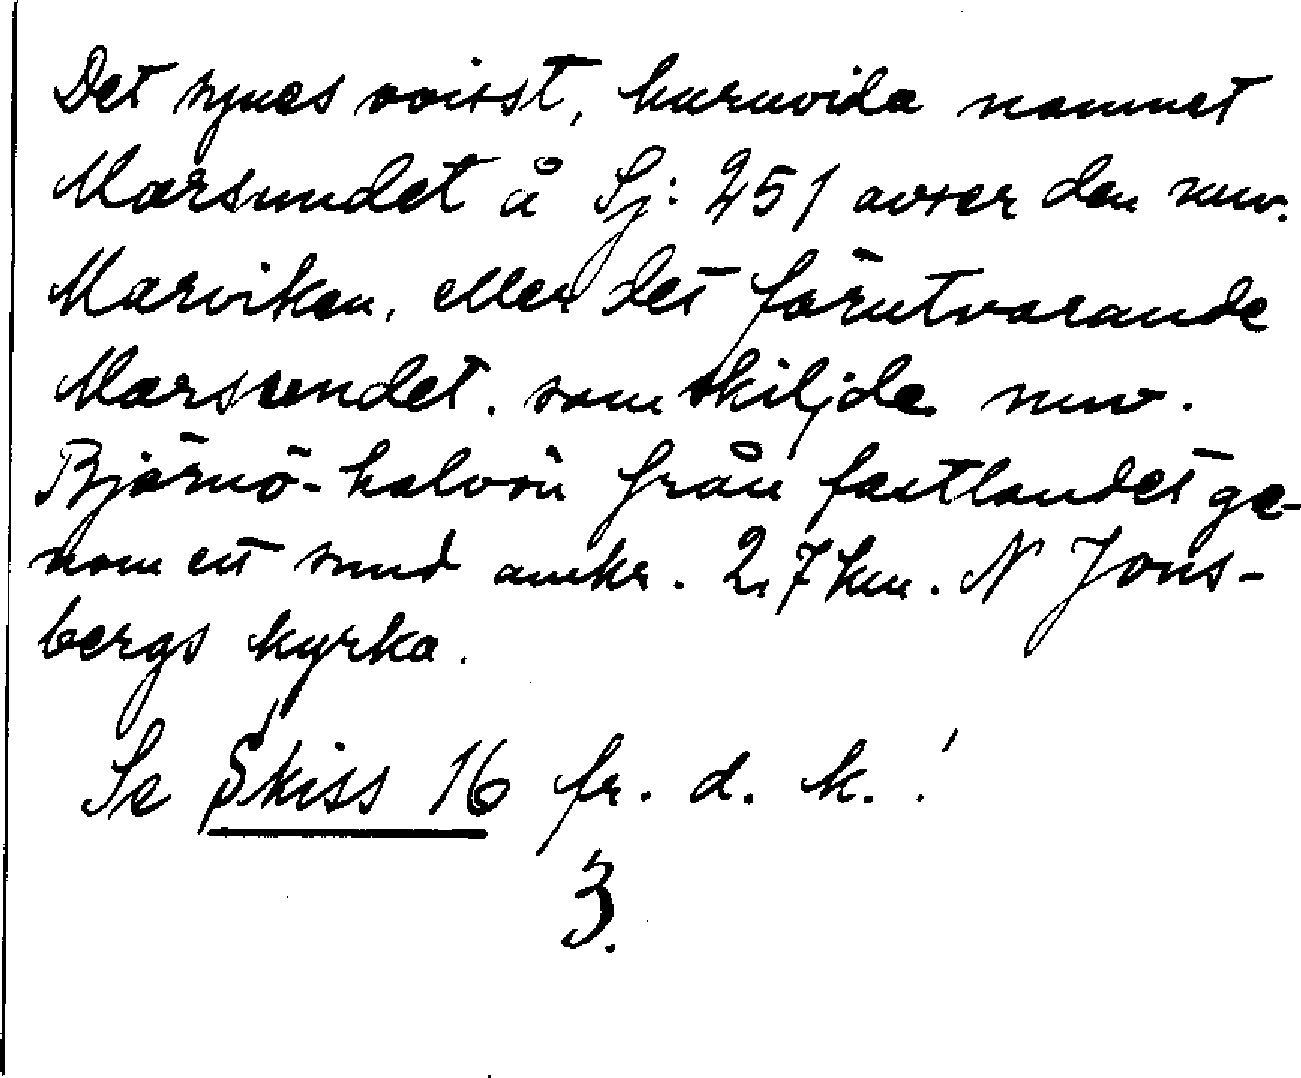 Det synes ovisst, huruvida namnet
Marsundet å Sj: 251 avser den nuv.
Marviken, eller det förutvarande
Marsundet. som skiljde nuv.
Björnö-halvön från fastlandet ge-
nom ett sund omkr. 2,7 km. N Jons-
bergs kyrka.
Se Skiss 16 fr. d. k.!
3.